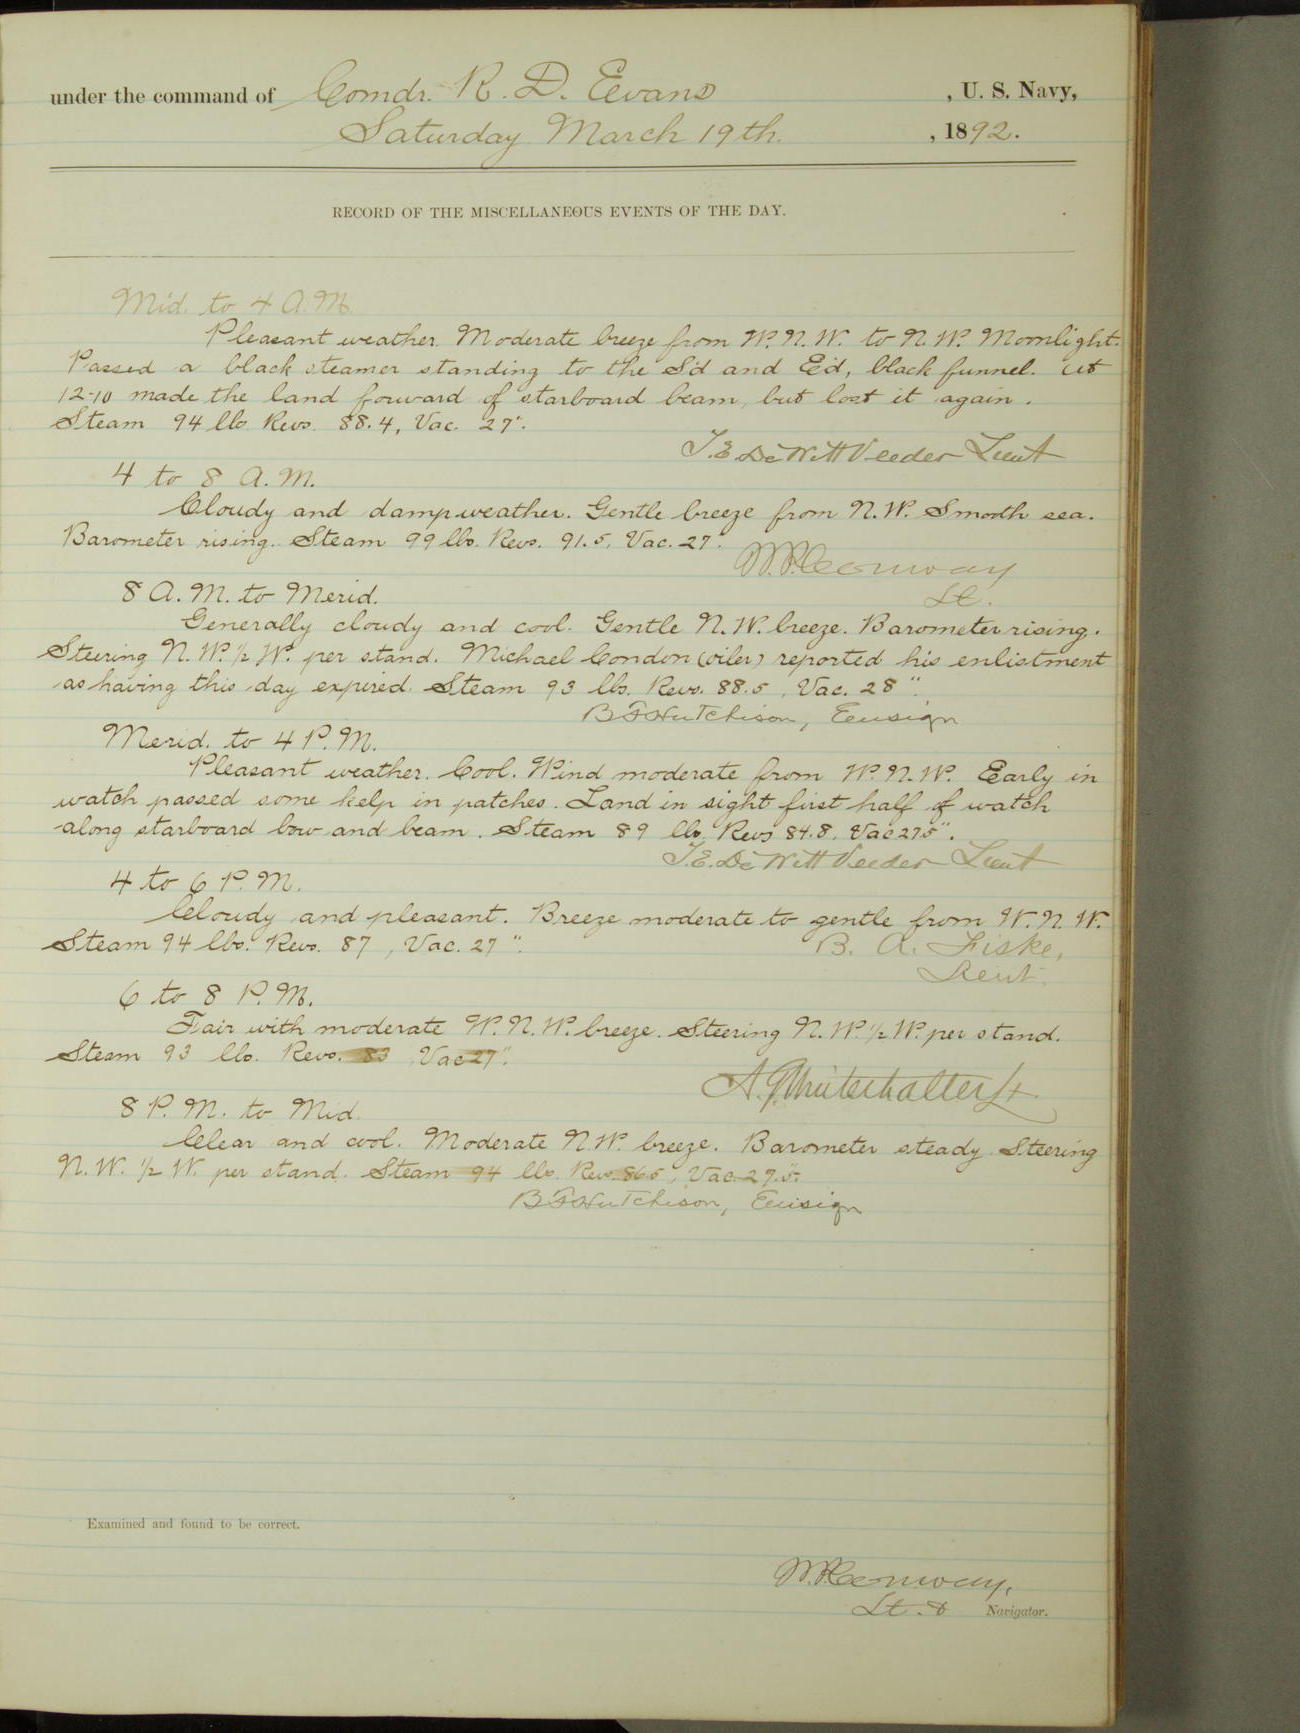 under the command of Comdr. R. D. Evans, U. S. Navy,
Saturday March 19th., 1892.
RECORD OF THE MISCELLANEOUS EVENTS OF THE DAY.
Mid. to 4 A.M.
Pleasant weather. Moderate breeze from W.N.W. to N.W. Moonlight.
Passed a black steamer standing to the S'd and E'd, black funnel. At
12-10 made the land forward of starboard beam, but lost it again.
Steam 94 lbs Revs. 88.4, Vac. 27".
T.E. DeWitt Veeder Lieut
4 to 8 A.M.
Cloudy and damp weather. Gentle breeze from N.W. Smooth sea.
Barometer rising. Steam 99 lbs. Revs. 91.5, Vac. 27".
W.P. Conway
Lt.
8 A.M. to Merid.
Generally cloudy and cool. Gentle N.W. breeze. Barometer rising.
Steering N.W. 1/2 W. per stand. Michael Condon (oiler) reported his enlistment
as having this day expired. Steam 93 lbs. Revs. 88.5, Vac. 28".
B F Hutchison, Ensign
Merid. to 4 P.M.
Pleasant weather. Cool. Wind moderate from W.N.W. Early in
watch passed some kelp in patches. Land in sight first half of watch
along starboard bow and beam. Steam 89 lbs. Revs 84.8. Vac 27.5".
T.E. DeWitt Veeder Lieut
4 to 6 P.M.
Cloudy and pleasant. Breeze moderate to gentle from W.N.W.
Steam 94 lbs. Revs. 87, Vac. 27".
B. A. Fiske,
Lieut.
6 to 8 P.M.
Fair with moderate W.N.W. breeze. Steering N.W. 1/2 W. per stand.
Steam 93 lbs. Revs. 83, Vac 27".
A. G. Winterhalter Lt.
8 P.M. to Mid.
Clear and cool. Moderate N.W. breeze. Barometer steady. Steering
N.W. 1/2 W. per stand. Steam 94 lbs. Revs. 86.5, Vac. 27.5".
B F Hutchison, Ensign
Examined and found to be correct.
W.P. Conway,
Lt. & Navigator.